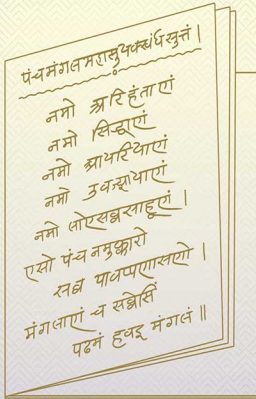 पंचमंगलमहासुयक्खंधसुत्तं ।
नमो अरिहंताणं
नमो सिद्धाणं
नमो आयरियाणं
नमो उवज्झायाणं
नमो लोएसव्वसाहूणं ।
एसो पंच नमुक्कारो
सव्व पावप्पणासणो ।
मंगलाणं च सव्वेसिं
पढमं हवइ मंगलं ॥